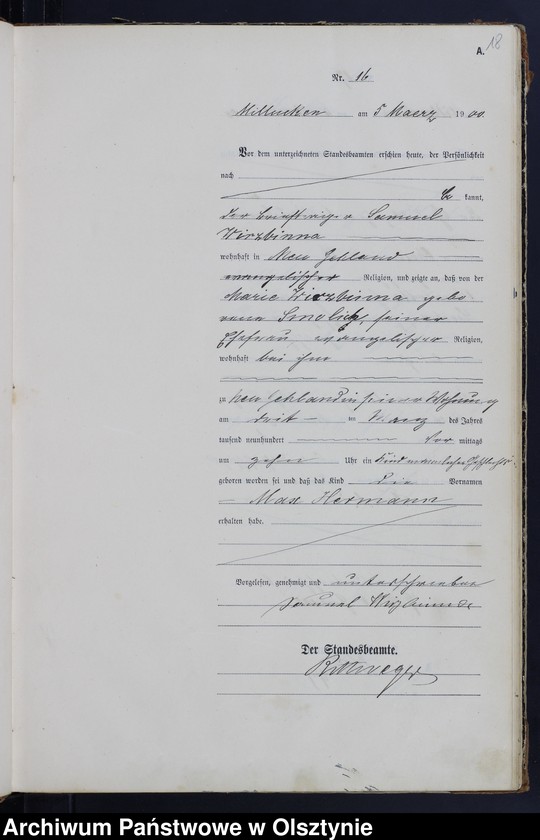 18
A.
Nr. 16
Millucken am 5 Maerz 1900.
Vor dem unterzeichneten Standesbeamten erschien heute, der Persönlichkeit
nach
be kannt,
der Samuel
Wirzbinna
wohnhaft in Neu Gehland
evangelischer Religion, und zeigte an, daß von der
Marie Wirzbinna gebo
rene Smolich, seiner
Ehefrau evangelischer Religion,
wohnhaft bei ihm
zu Neu Gehland in seiner Wohnung
am drit – ten Maerz des Jahres
tausend neunhundert Vor mittags
um zehn Uhr ein Kind maennlichen Geschlechts
geboren worden sei und daß das Kind die Vornamen
– Max Hermann
erhalten habe.
Vorgelesen, genehmigt und unterschrieben
Samuel Wirzbinna
Der Standesbeamte.
Archiwum Państwowe w Olsztynie